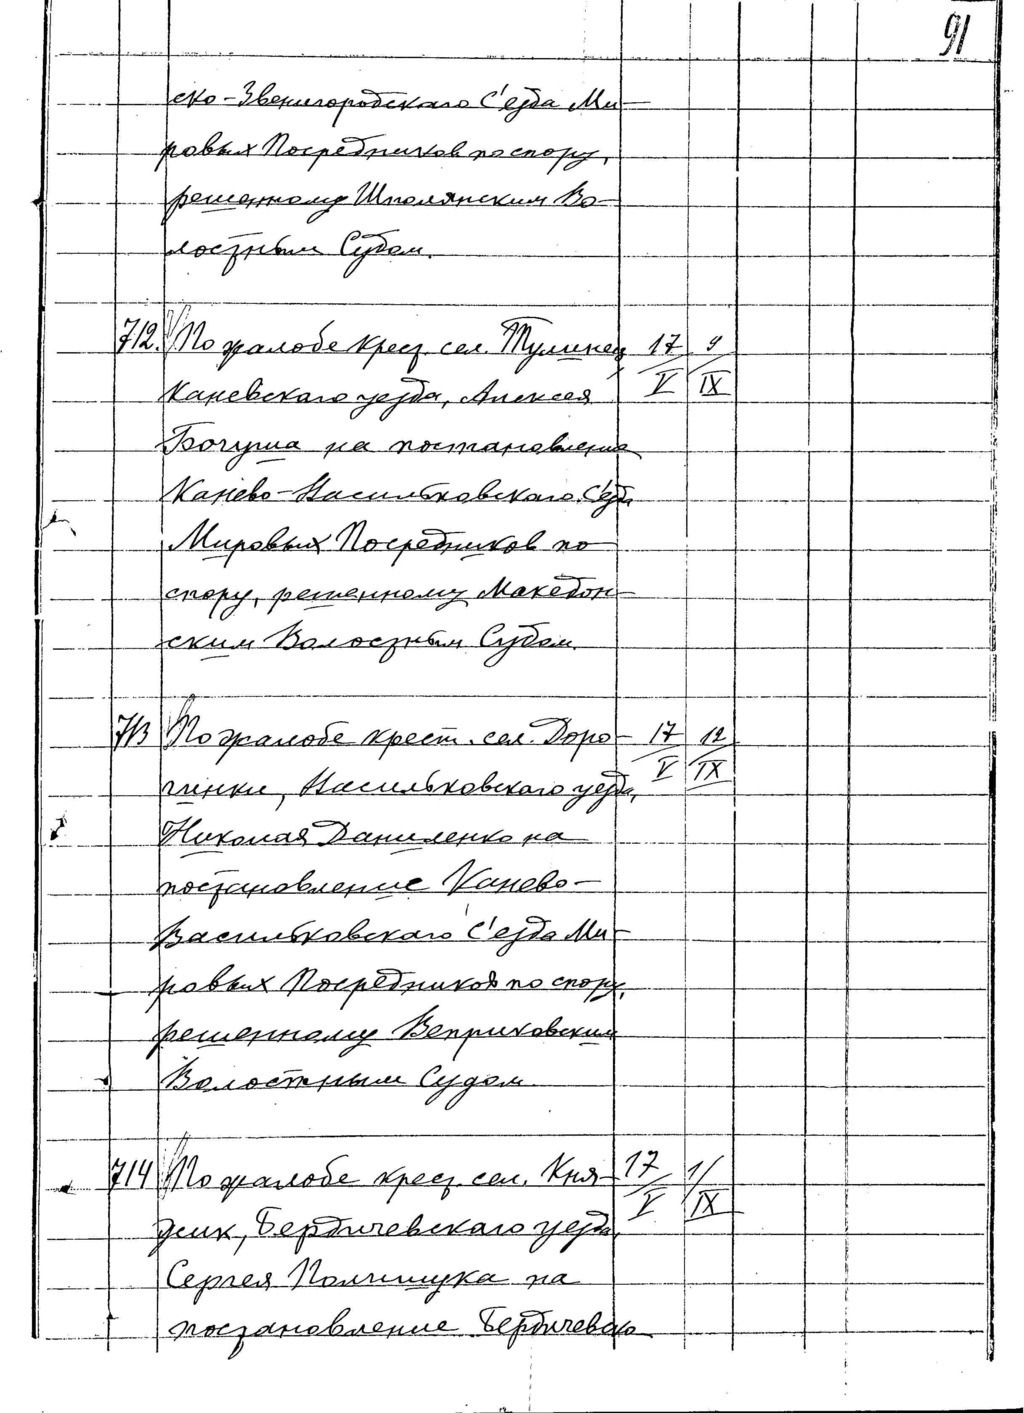 91
ско-Звенигородскаго С'езда Ми-
ровых Посредников по спору,
решенному Шполянским Во-
лостным Судом.
712. По жалобе крест. сел. Тулинец 17/V 9/IX
Каневскаго уезда, Алексея
Богуша на постановление
Канево-Васильковскаго С'езда
Мировых Посредников по
спору, решенному Македон-
ским Волостным Судом.
713 По жалобе крест. сел. Доро- 17/V 12/IX
гинки, Васильковскаго уезда,
Николая Даниленко на
постановление Канево-
Васильковскаго С'езда Ми-
ровых Посредников по спору,
решенному Веприковским
Волостным Судом.
714 По жалобе крест. сел. Кня- 17/V 1/IX
жик, Бердичевскаго уезда,
Сергея Полищука на
постановление Бердичевско